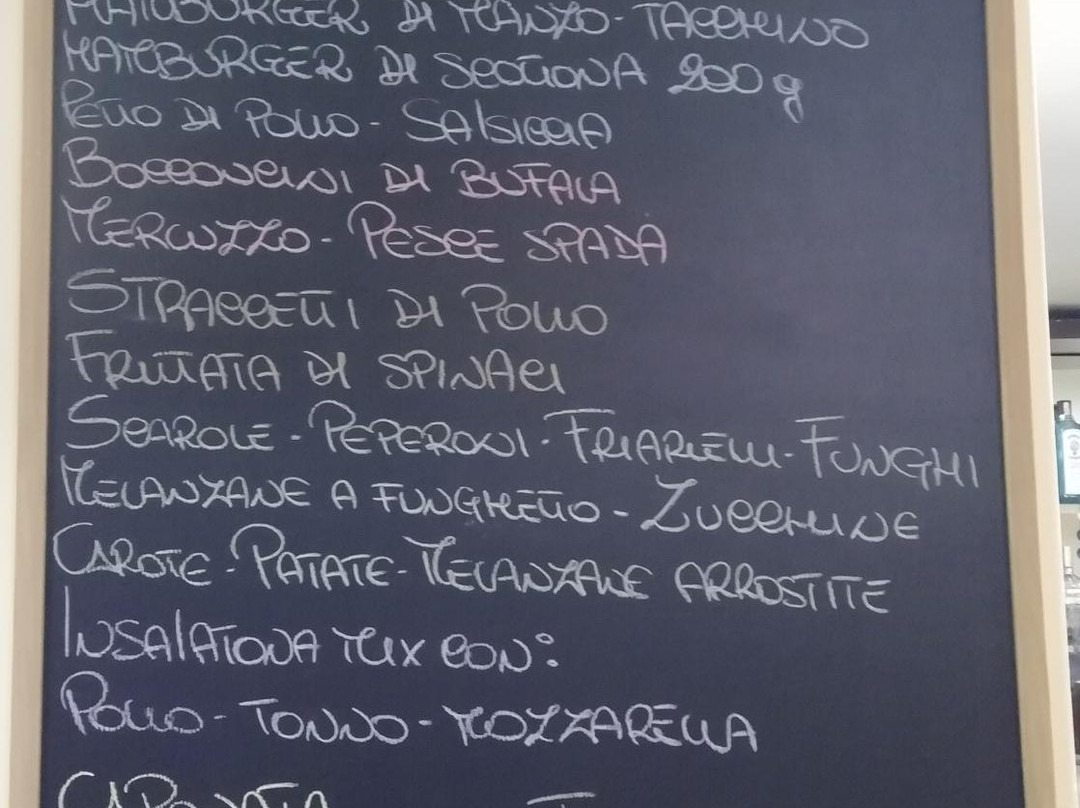 HAMBURGER DI MANZO - TACCHINO
HAMBURGER DI SCOTTONA 200 g
PETTO DI POLLO - SALSICCIA
BOCCONCINI DI BUFALA
MERLUZZO - PESCE SPADA
STRACCETTI DI POLLO
FRITTATA DI SPINACI
SCAROLE - PEPERONI - FRIARIELLI - FUNGHI
MELANZANE A FUNGHETTO - ZUCCHINE
CAROTE - PATATE - MELANZANE ARROSTITE
INSALATONA MIX CON:
POLLO - TONNO - MOZZARELLA
CAPONATA